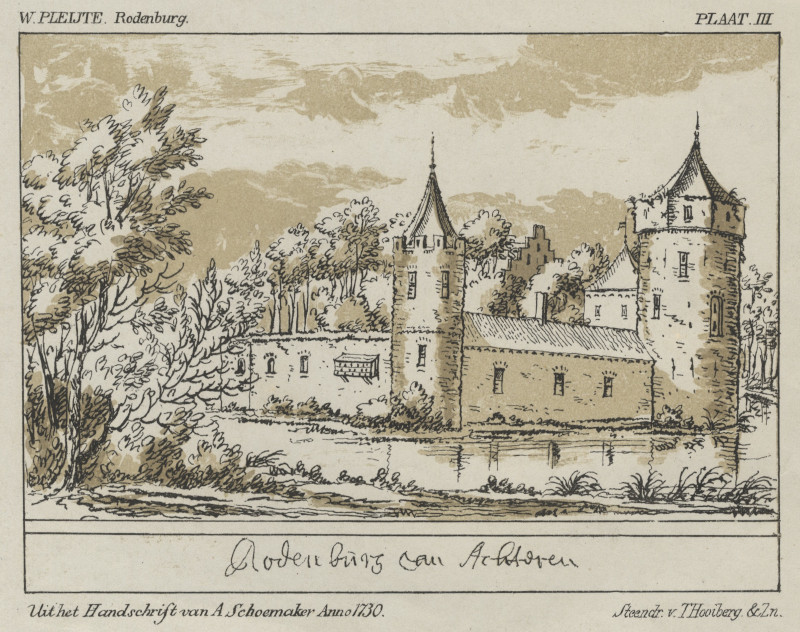 W. PLEIJTE. Rodenburg.
PLAAT. III
Rodenburg van Achteren
Uit het Handschrift van A Schoemaker Anno 1730.
Steendr. v. T Hooiberg. & Zn.